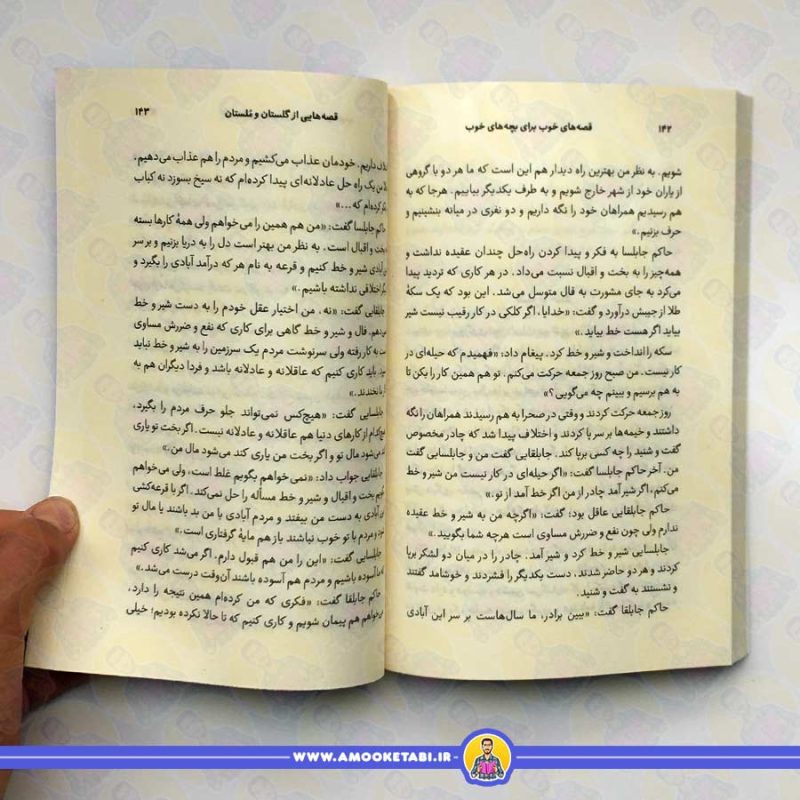 ۱۴۲ قصه‌های خوب برای بچه‌های خوب
شویم. به نظر من بهترین راه دیدار هم این است که ما هر دو با گروهی
از یاران خود از شهر خارج شویم و به طرف یکدیگر بیاییم. هرجا که به
هم رسیدیم همراهان خود را نگه داریم و دو نفری در میانه بنشینیم و
حرف بزنیم.»
حاکم جابلسا به فکر و پیدا کردن راه‌حل چندان عقیده نداشت و
همه‌چیز را به بخت و اقبال نسبت می‌داد. در هر کاری که تردید پیدا
می‌کرد به جای مشورت به فال متوسل می‌شد. این بود که یک سکهٔ
طلا از جیبش درآورد و گفت: «خدایا، اگر کلکی در کار رقیب نیست شیر
بیاید اگر هست خط بیاید.»
سکه را انداخت و شیر و خط کرد. پیغام داد: «فهمیدم که حیله‌ای در
کار نیست. من صبح روز جمعه حرکت می‌کنم. تو هم همین کار را بکن تا
به هم برسیم و ببینم چه می‌گویی؟»
روز جمعه حرکت کردند و وقتی در صحرا به هم رسیدند همراهان را نگه
داشتند و خیمه‌ها بر سر پا کردند و اختلاف پیدا شد که چادر مخصوص
گفت و شنید را چه کسی برپا کند. جابلقایی گفت من و جابلسایی گفت
من. آخر حاکم جابلسا گفت: «اگر حیله‌ای در کار نیست من شیر و خط
می‌کنم، اگر شیر آمد چادر از من اگر خط آمد از تو.»
حاکم جابلقایی عاقل بود؛ گفت: «اگرچه من به شیر و خط عقیده
ندارم ولی چون نفع و ضررش مساوی است هرچه شما بگویید.»
جابلسایی شیر و خط کرد و شیر آمد. چادر را در میان دو لشکر برپا
کردند و هر دو حاضر شدند، دست یکدیگر را فشردند و خوشامد گفتند
و نشستند به گفت و شنید.
حاکم جابلقا گفت: «ببین برادر، ما سال‌هاست بر سر این آبادی
قصه‌هایی از گلستان و ملستان ۱۴۳
داریم. خودمان عذاب می‌کشیم و مردم را هم عذاب می‌دهیم.
من یک راه حل عادلانه‌ای پیدا کرده‌ام که نه سیخ بسوزد نه کباب
کرده‌ام که ...»
حاکم جابلسا گفت: «من هم همین را می‌خواهم ولی همهٔ کارها بسته
و اقبال است. به نظر من بهتر است دل را به دریا بزنیم و بر سر
آبادی شیر و خط کنیم و قرعه به نام هر که درآمد آبادی را بگیرد و
اختلافی نداشته باشیم.»
جابلقایی گفت: «نه، من اختیار عقل خودم را به دست شیر و خط
قال و شیر و خط گاهی برای کاری که نفع و ضررش مساوی
به کار رفته ولی سرنوشت مردم یک سرزمین را به شیر و خط نباید
باید کاری کنیم که عاقلانه و عادلانه باشد و فردا دیگران هم به
نخندند.»
جابلسایی گفت: «هیچ‌کس نمی‌تواند جلو حرف مردم را بگیرد،
از کارهای دنیا هم عاقلانه و عادلانه نیست. اگر بخت تو یاری
می‌شود مال تو و اگر بخت من یاری کند می‌شود مال من.»
جابلقایی جواب داد: «نمی‌خواهم بگویم غلط است، ولی می‌خواهم
بخت و اقبال و شیر و خط مسأله را حل نمی‌کند. اگر با قرعه‌کشی
آبادی به دست من بیفتد و مردم آبادی با من بد باشند یا مال تو
و مردم با تو خوب نباشند باز هم مایهٔ گرفتاری است.»
جابلسایی گفت: «این را من هم قبول دارم. اگر می‌شد کاری کنیم
ما آسوده باشیم و مردم هم آسوده باشند آن‌وقت درست می‌شد.»
حاکم جابلقا گفت: «فکری که من کرده‌ام همین نتیجه را دارد،
می‌خواهم هم پیمان شویم و کاری کنیم که تا حالا نکرده بودیم؛ خیلی
WWW.AMOOKETABI.IR